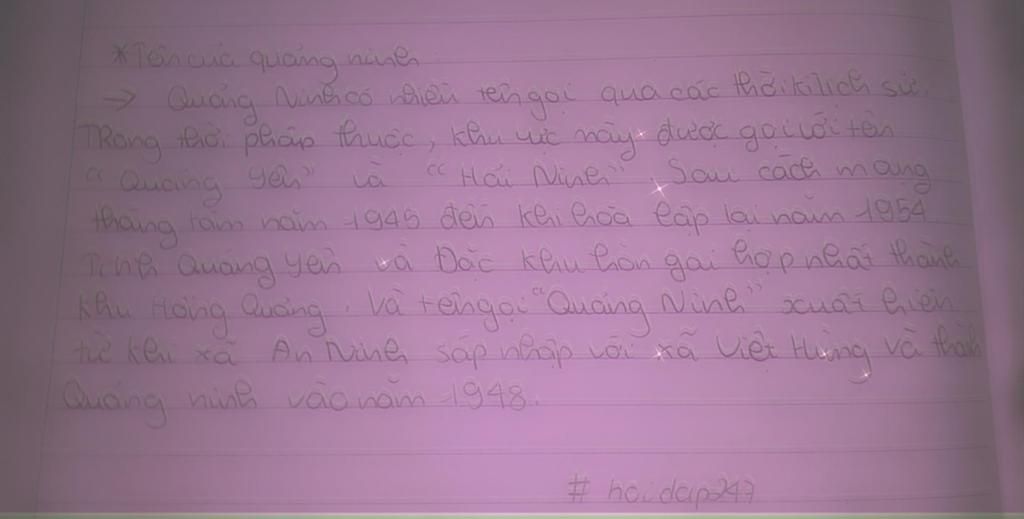 *Tên của quảng ninh
→ Quảng Ninh có nhiều tên gọi qua các thời kì lịch sử.
Trong thời pháp thuộc, khu vực này được gọi với tên
"Quảng Yên" và "Hải Ninh". Sau cách mạng
tháng tám năm 1945 đến khi hoà lập lại năm 1954
Tỉnh Quảng yên và Đặc khu hòn gai hợp nhất thành
khu Hồng Quảng. Và tên gọi "Quảng Ninh" xuất hiện
từ khi xã An Ninh sáp nhập với xã Việt Hưng và thành
Quảng ninh vào năm 1948.
# hoidap247